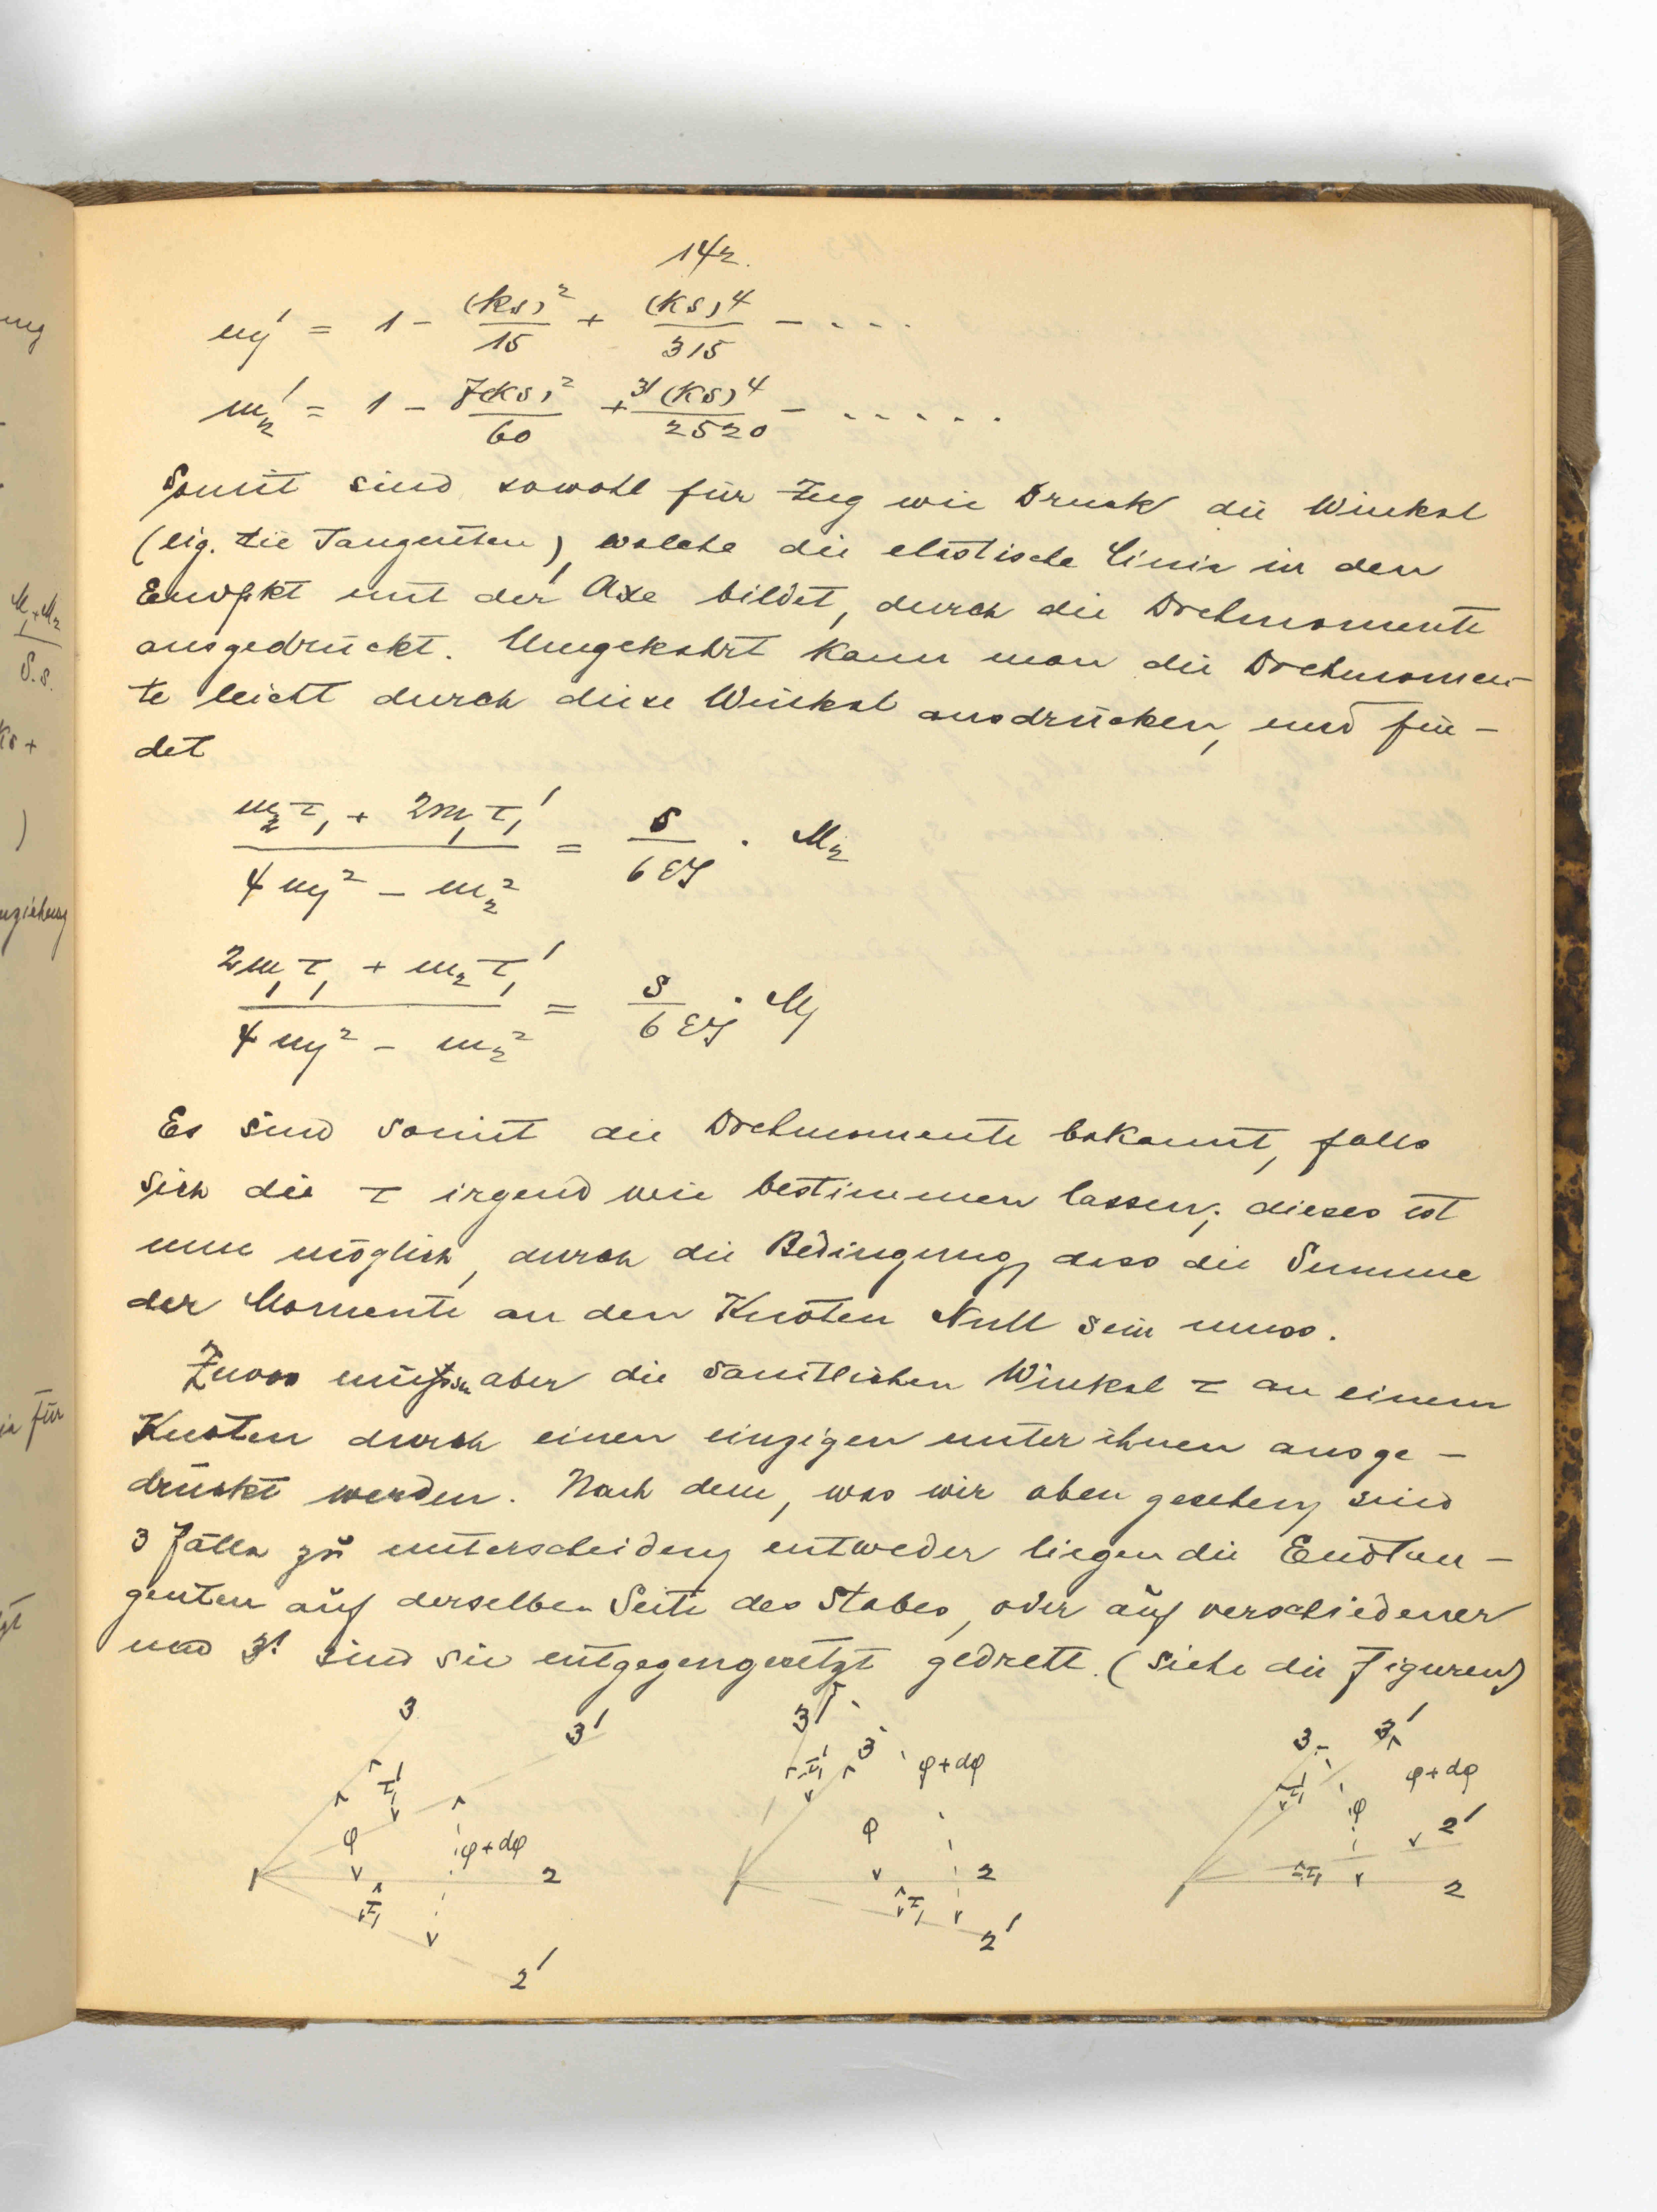 142.
m₁' = 1 - (ks)²/15 + (ks)⁴/315 - ....
m₂' = 1 - 7(ks)²/60 + 31(ks)⁴/2520 - .....
Somit sind sowohl für Zug wie Druck die Winkel
(eig. die Tangenten), welche die elastische Linie in den
Endpkt mit der Axe bildet, durch die Drehmomente
ausgedrückt. Umgekehrt kann man die Drehmomen-
te leicht durch diese Winkel ausdrücken, und fin-
det
(m₂τ₁ + 2m₁τ₁')/(4m₁² - m₂²) = s/(6EJ) · M₂
(2m₁τ₁ + m₂τ₁')/(4m₁² - m₂²) = s/(6EJ) · M₁
Es sind somit die Drehmomente bekannt, falls
sich die τ irgend wie bestimmen lassen; dieses ist
nun möglich, durch die Bedingung, dass die Summe
der Momente an den Knoten Null sein muss.
Zuvor müssen aber die sämtlichen Winkel τ an einem
Knoten durch einen einzigen unter ihnen ausge-
drückt werden. Nach dem, was wir oben gesehen, sind
3 Fälle zu unterscheiden, entweder liegen die Endtan-
genten auf derselben Seite des Stabes, oder auf verschiedener
und 3! sind sie entgegengesetzt gedreht. (siehe die Figuren)
3 3' τ₁' φ φ+dφ 2 τ₁ 2'
3' τ₁' 3 φ+dφ φ 2 τ₁ 2'
3 3' τ₁' φ+dφ φ 2' τ₁ 2
ung
M₁+M₂
S.s.
ks +
)
nziehung
für